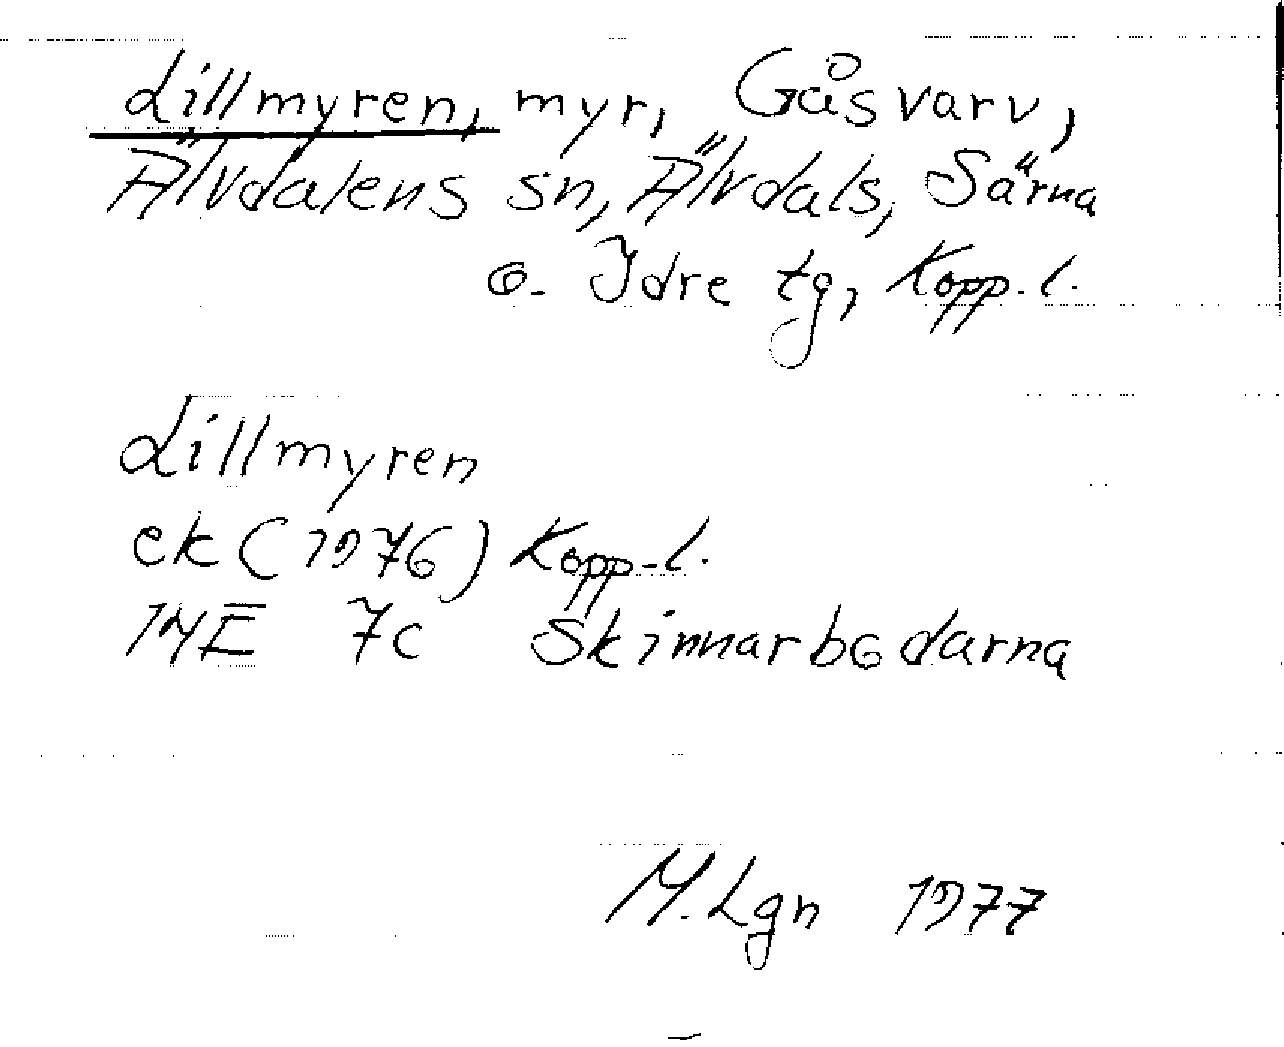 Lillmyren, myr, Gåsvarv,
Älvdalens sn, Älvdals, Särna
o. Idre tg, Kopp. l.
Lillmyren
ek (1976) Kopp. l.
14E 7c Skinnarbodarna
M. Lgn 1977